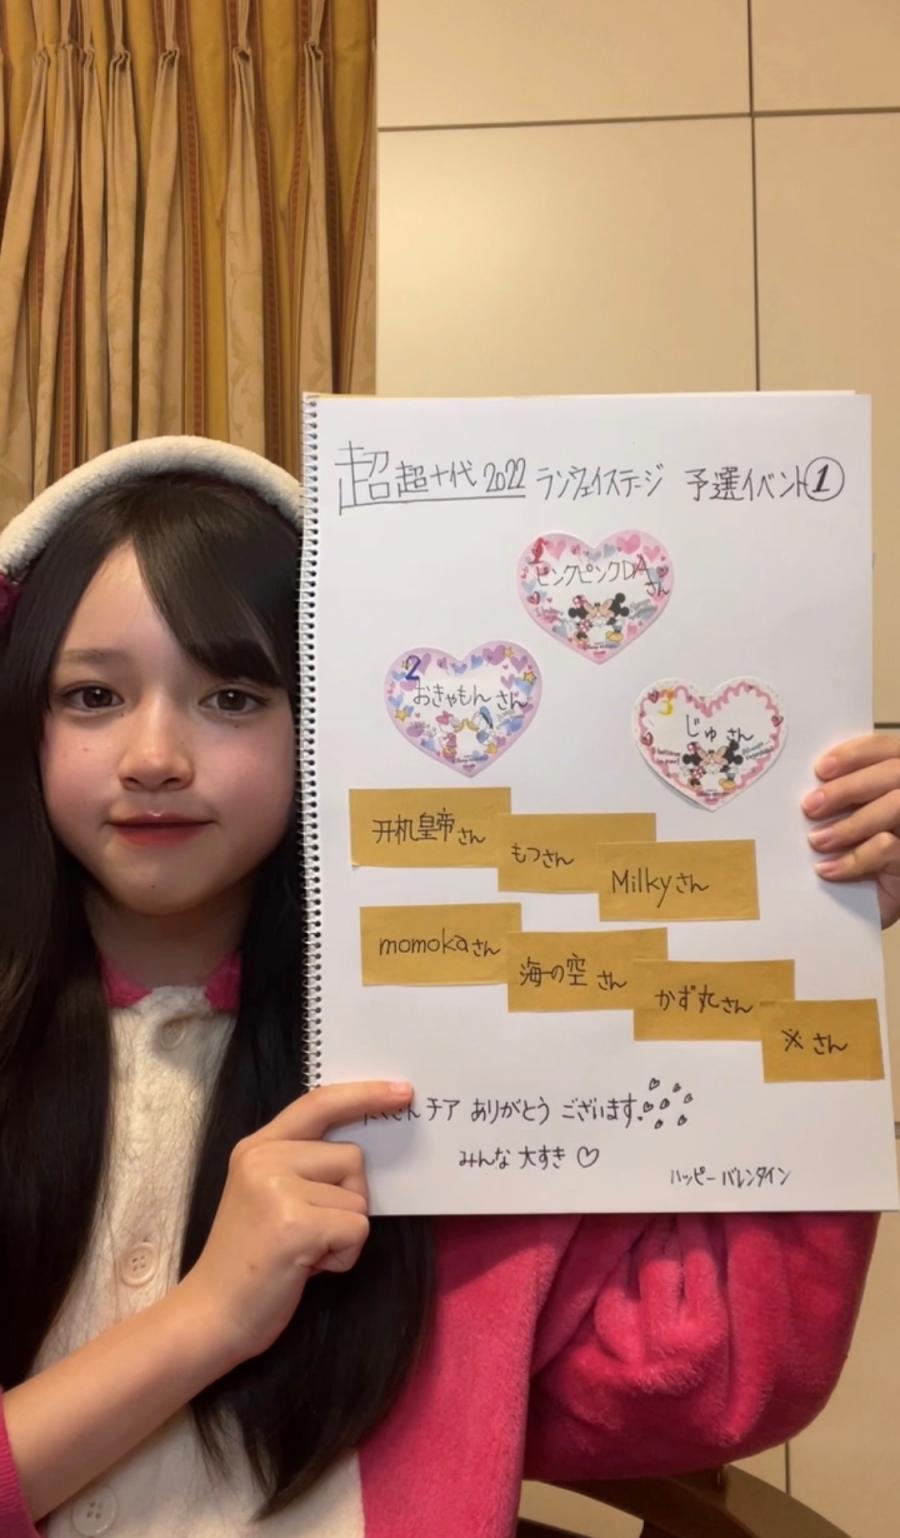 超超十代2022 ランウェイステージ 予選イベント①
1
ピンクピンクDAさん
2
おきゃもんさん
3
じゅさん
开机皇帝さん
もつさん
Milkyさん
momokaさん
海の空さん
かず丸さん
※さん
さん チア ありがとう ございます
みんな 大すき♡
ハッピーバレンタイン